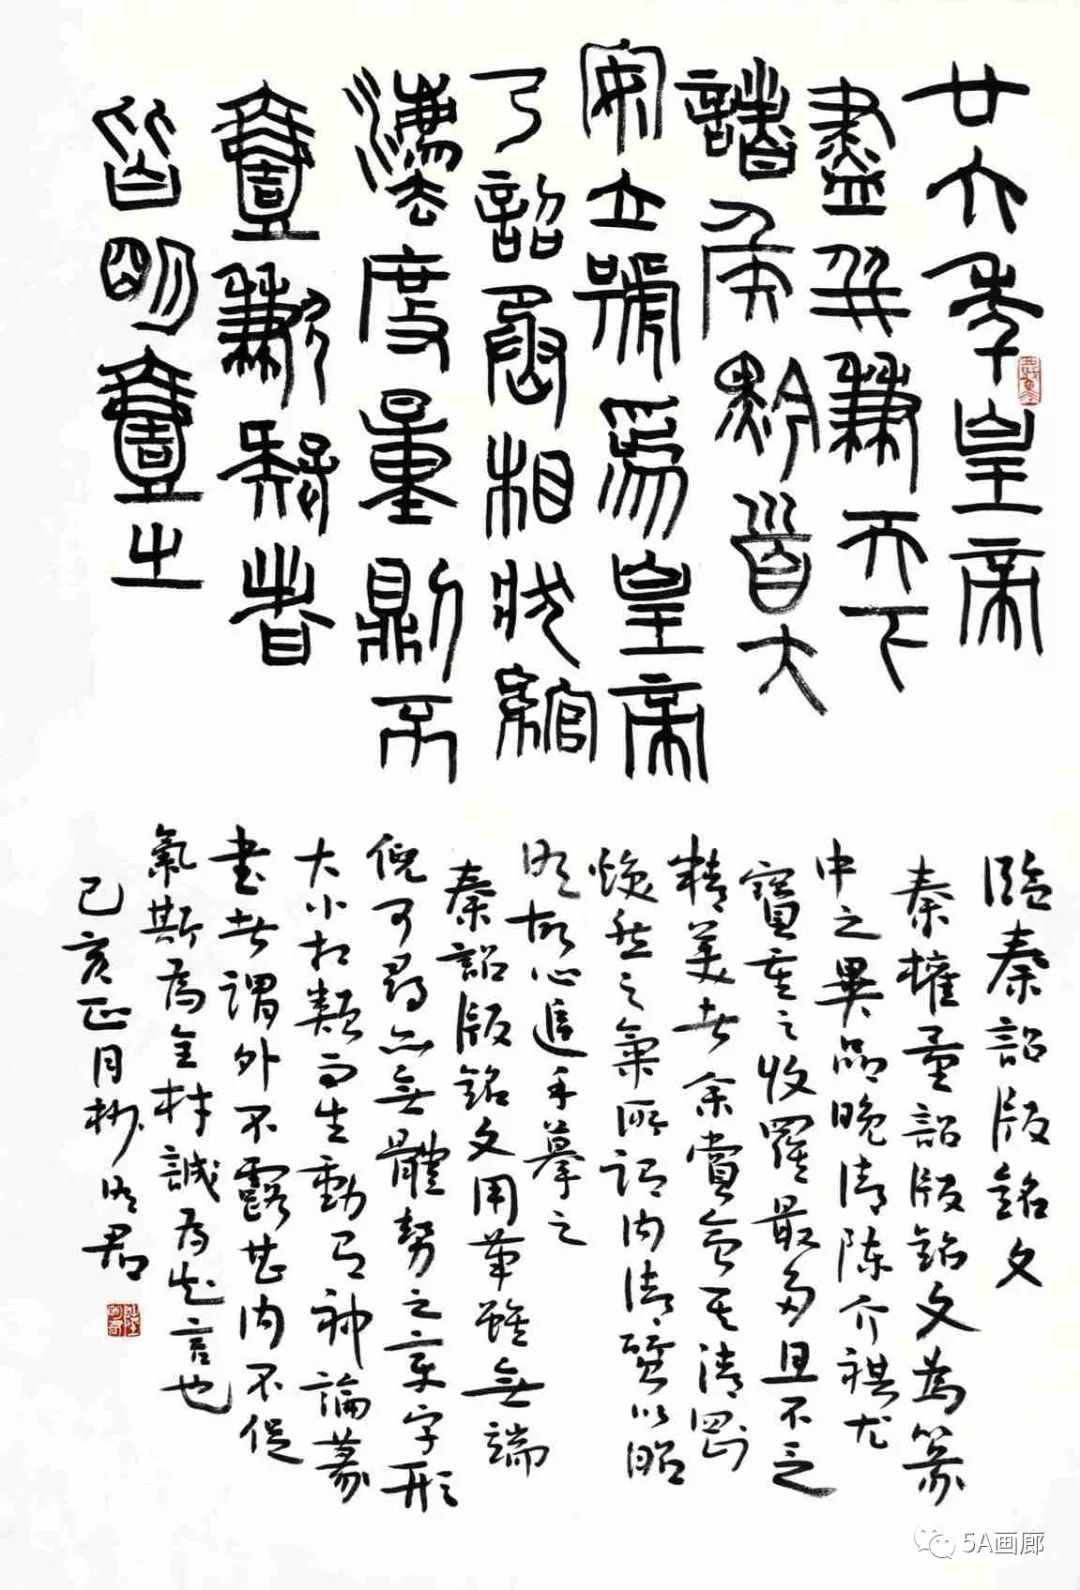 廿六年皇帝
盡并兼天下
諸侯黔首大
安立號為皇帝
乃詔丞相狀綰
灋度量鼎不
壹歉疑者
皆明壹之
臨秦詔版銘文
秦權量詔版銘文為篆
中之異品晚清陳介祺尤
寶重之收羅最多且不乏
精美者余賞會其清罡
煥然之氣所謂內清質以昭
明故心追手摹之
秦詔版銘文用筆雖無端
倪可尋而無體勢之享字形
大小相類而生動有神論篆
書者謂外不露廿內不促
氣斯為全材誠為知言也
己亥正月 明君
5A画廊